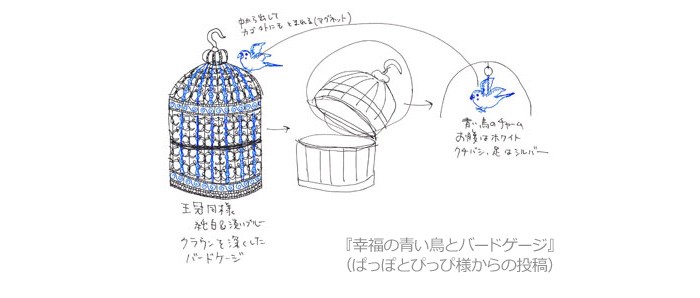 中から出して
カゴの外にも とまれる(マグネット)
青い鳥のチャーム
お腹はホワイト
クチバシ、足はシルバー
王冠同様。
純白&淡いブルー
クラウンを深くした
バードケージ
『幸福の青い鳥とバードゲージ』
（ぱっぽとぴっぴ様からの投稿）